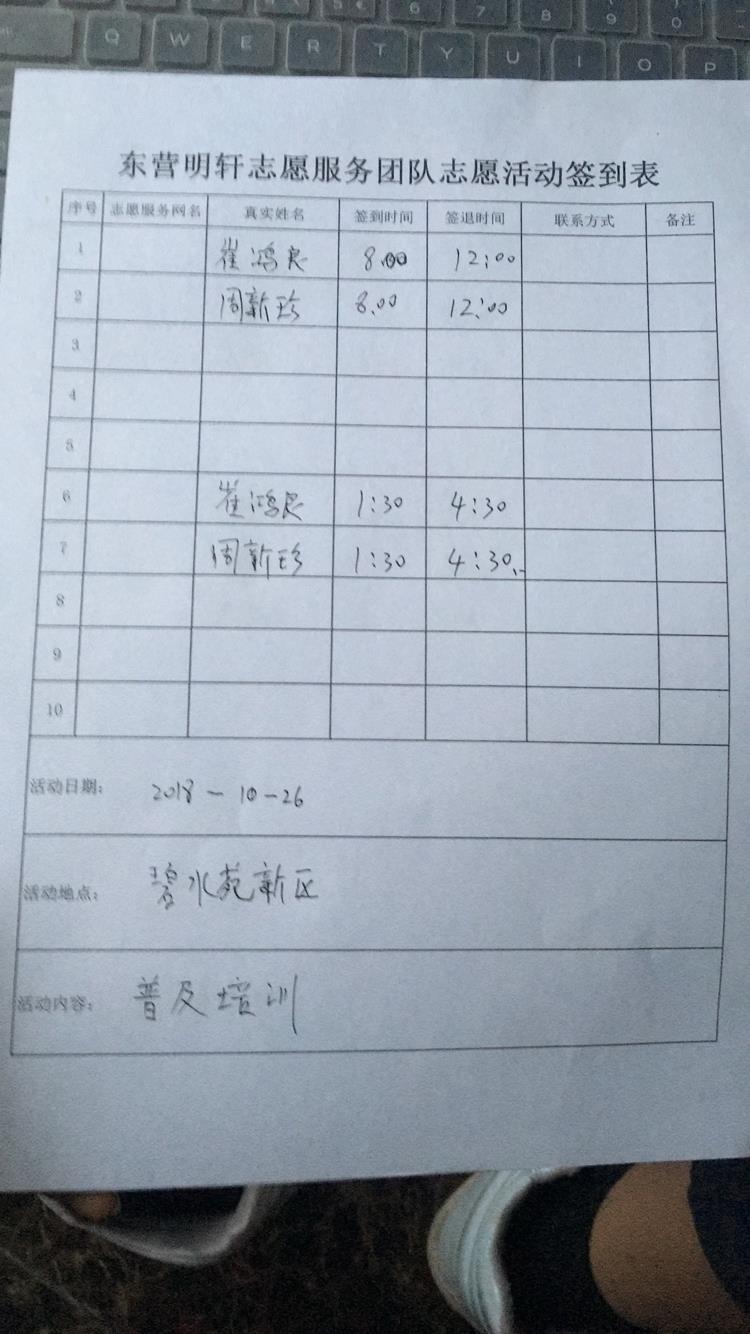 Q W E R T Y U I O P
东营明轩志愿服务团队志愿活动签到表
序号 志愿服务网名 真实姓名 签到时间 签退时间 联系方式 备注
1 崔鸿良 8.00 12:00
2 周新珍 8.00 12:00
3
4
5
6 崔鸿良 1:30 4:30
7 周新珍 1:30 4:30.
8
9
10
活动日期: 2018-10-26
活动地点: 碧水苑新区
活动内容: 普及培训